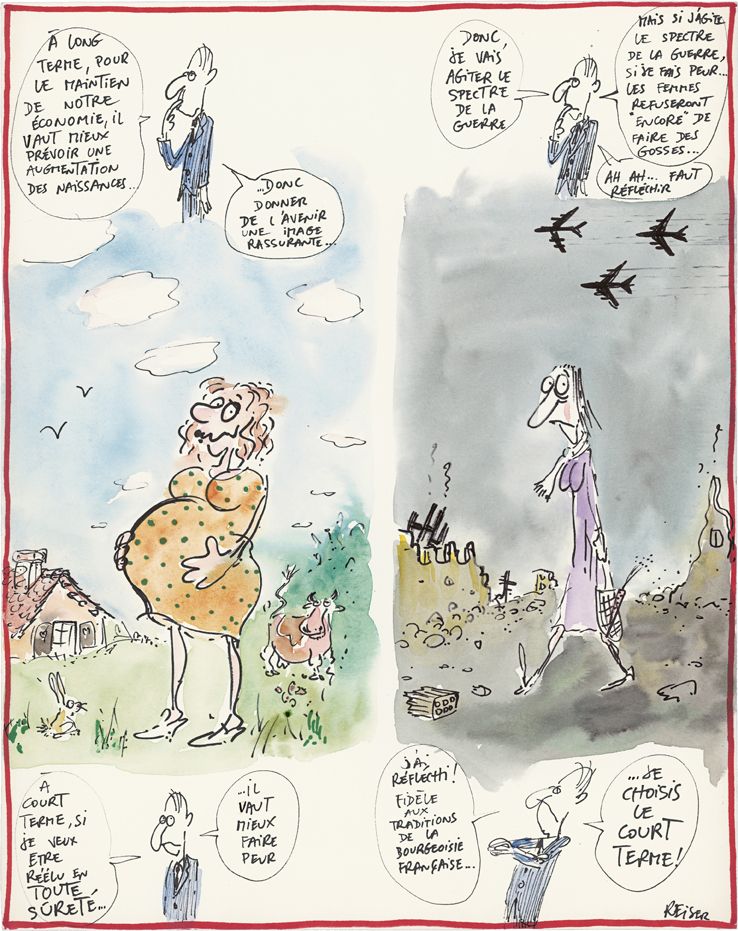 À LONG
TERME, POUR
LE MAINTIEN
DE NOTRE
ÉCONOMIE, IL
VAUT MIEUX
PRÉVOIR UNE
AUGMENTATION
DES NAISSANCES...
...DONC
DONNER
DE L'AVENIR
UNE IMAGE
RASSURANTE...
À
COURT
TERME, SI
JE VEUX
ETRE
RÉÉLU EN
TOUTE
SÛRETÉ...
...IL
VAUT
MIEUX
FAIRE
PEUR
DONC,
JE VAIS
AGITER LE
SPECTRE
DE LA
GUERRE
MAIS SI J'AGITE
LE SPECTRE
DE LA GUERRE,
SI JE FAIS PEUR...
LES FEMMES
REFUSERONT
"ENCORE" DE
FAIRE DES
GOSSES...
AH AH... FAUT
RÉFLÉCHIR
J'AI
RÉFLECHI!
FIDÈLE
AUX
TRADITIONS
DE LA
BOURGEOISIE
FRANÇAISE...
...JE
CHOISIS
LE
COURT
TERME!
REISER